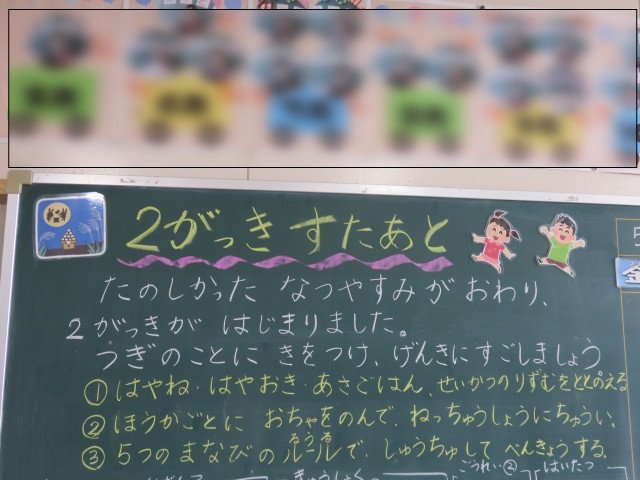 2がっき すたあと
たのしかった なつやすみが おわり、
2がっきが はじまりました。
つぎのことに きをつけ、げんきにすごしましょう
① はやね・はやおき・あさごはん、せいかつのりずむをととのえる
② ほうかごとに おちゃをのんで、ねっちゅうしょうにちゅうい。
るうる
③ 5つの まなびの ルールで、しゅうちゅうして べんきょうする。
きゅうしょく ごうれい② はいたつ
金